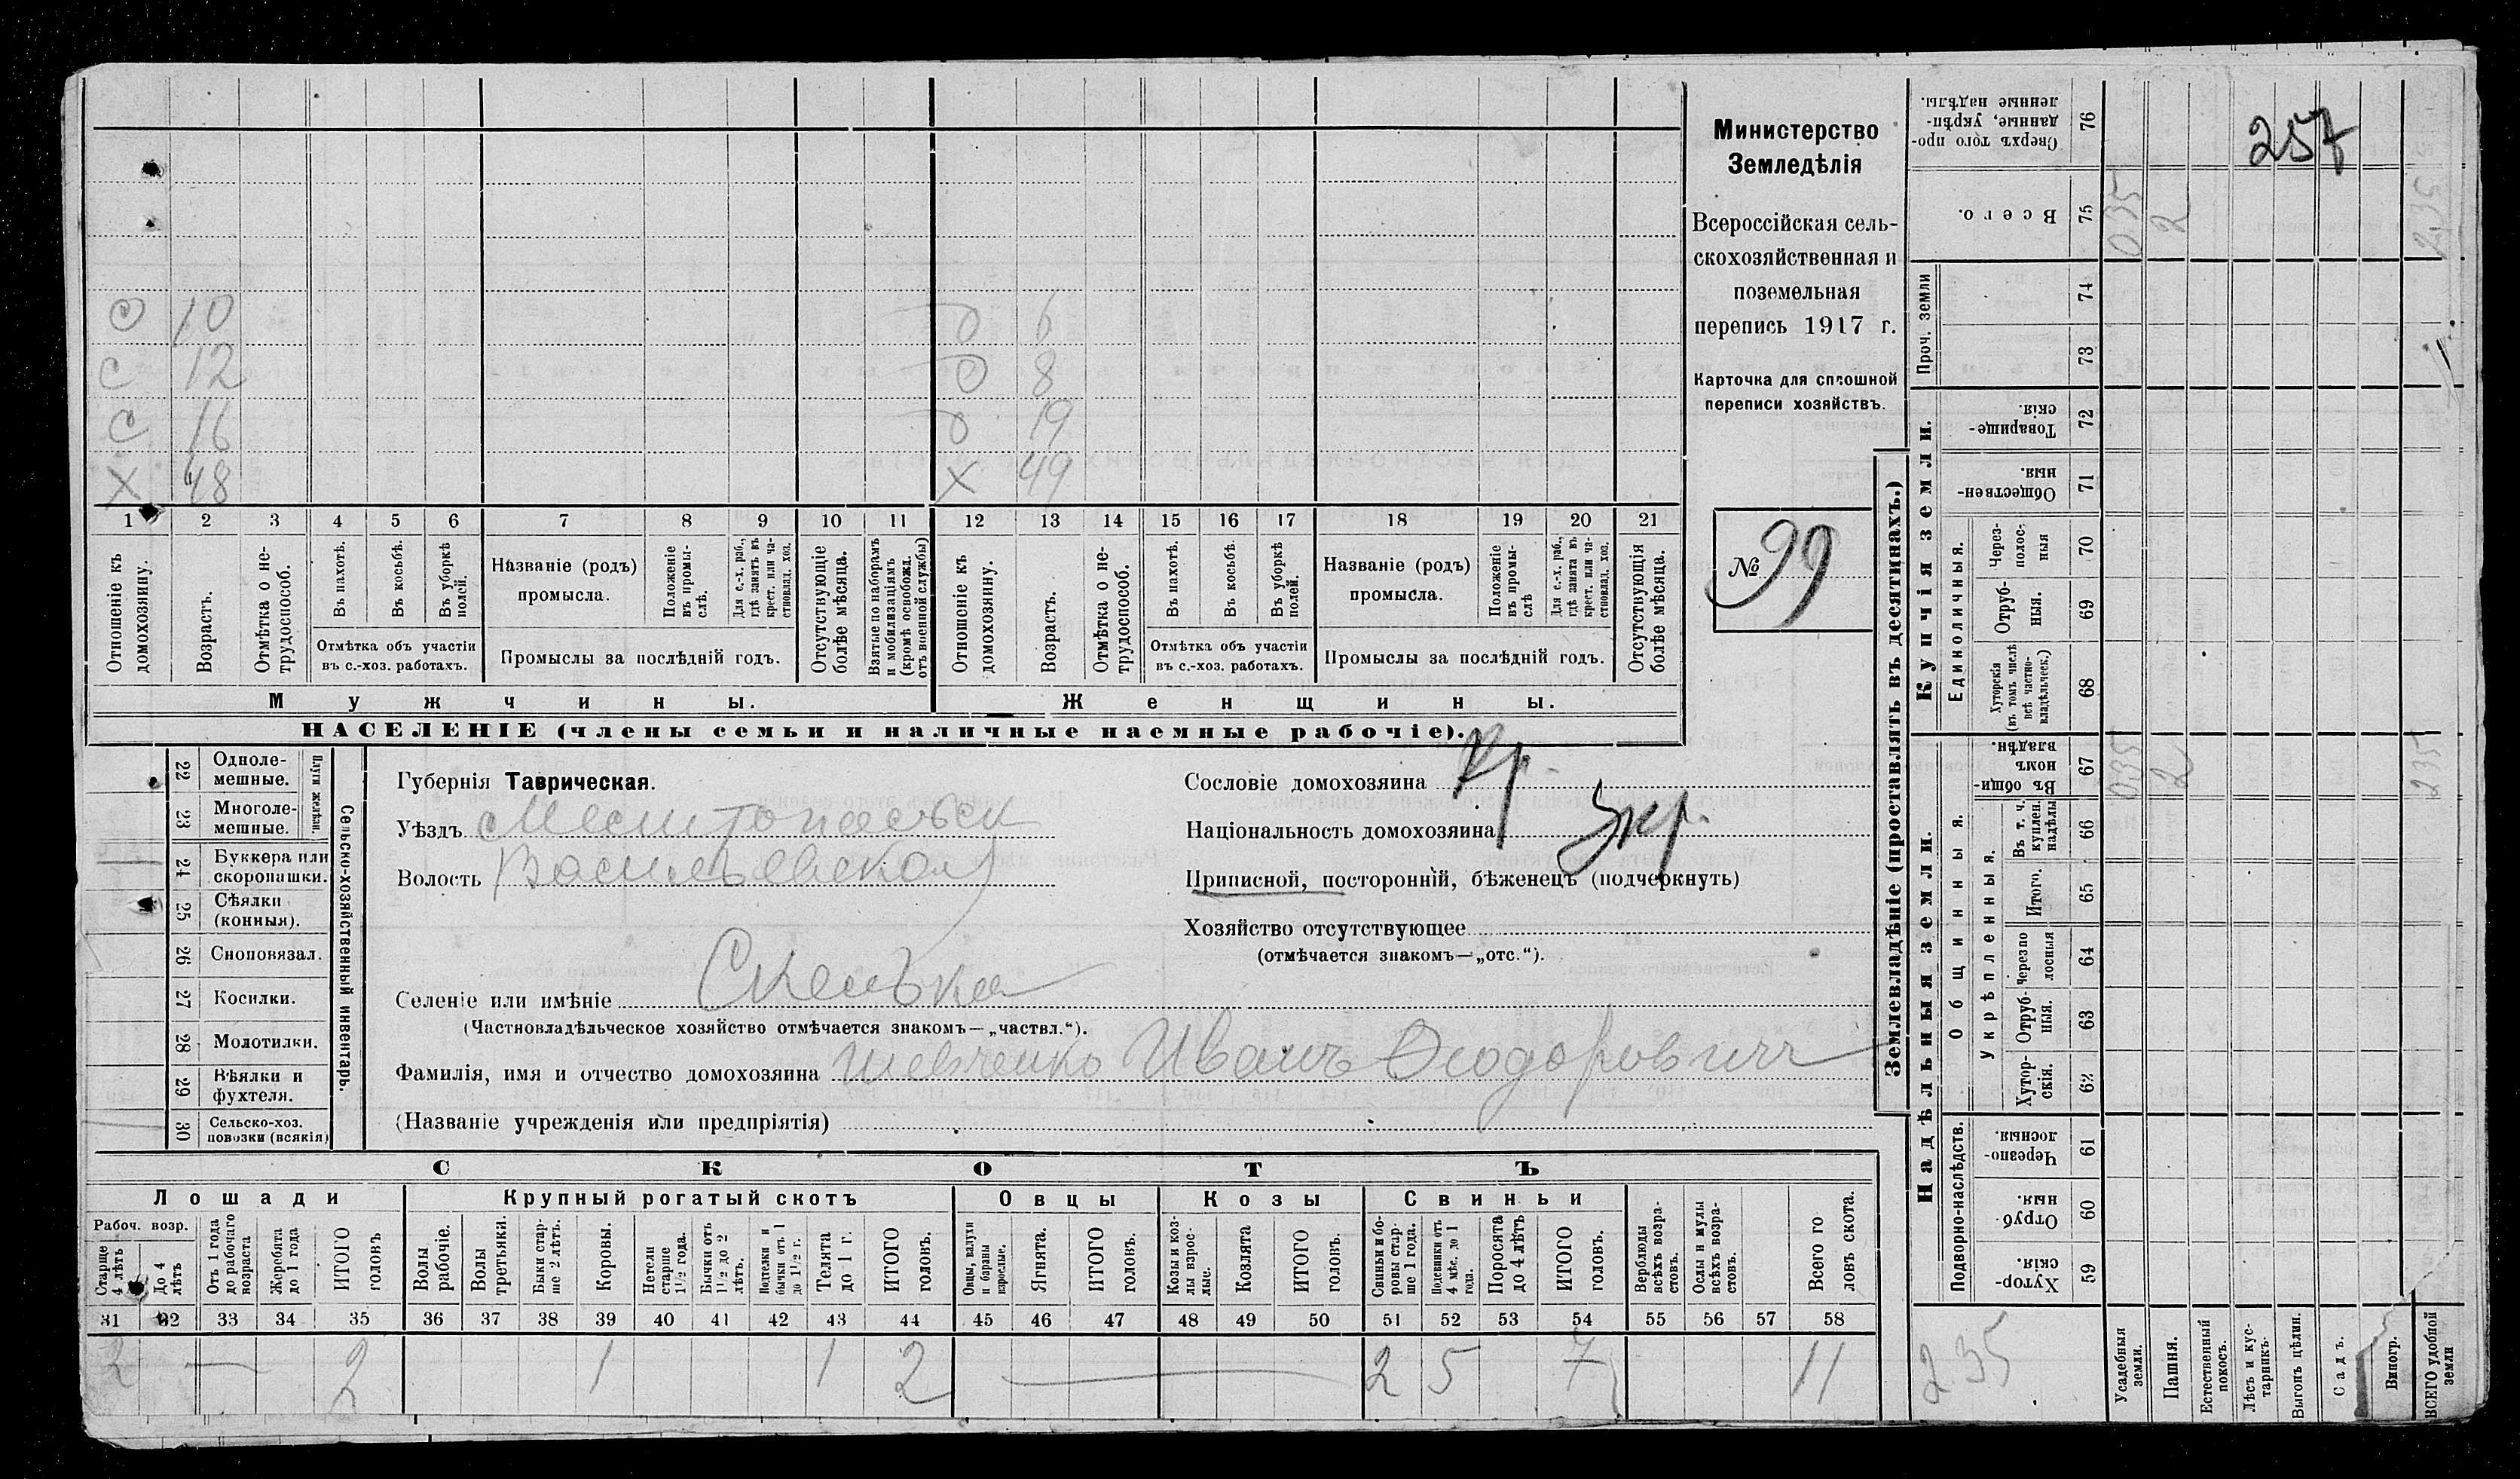 257
Министерство
Земледѣлія
Всероссійская сель-
скохозяйственная и
поземельная
перепись 1917 г.
Карточка для сплошной
переписи хозяйствъ.
№ 99
О 10 О 6
С 12 О 8
С 16 О 19
Х 48 Х 49
1 2 3 4 5 6 7 8 9 10 11 12 13 14 15 16 17 18 19 20 21
Отношеніе къ домохозяину.
Возрастъ.
Отмѣтка о не-трудоспособ.
Въ пахотѣ.
Въ косьбѣ.
Въ уборкѣ полей.
Отмѣтка объ участіи
въ с.-хоз. работахъ.
Названіе (родъ)
промысла.
Положеніе въ промы-слѣ.
Для с.-х. раб., гдѣ занятъ въ крест. или ча-стновлад. хоз.
Промыслы за послѣдній годъ.
Отсутствующіе болѣе мѣсяца.
Взятые по наборамъ и мобилизаціямъ (кромѣ освобожд. отъ военной службы)
Отношеніе къ домохозяину.
Возрастъ.
Отмѣтка о не-трудоспособ.
Въ пахотѣ.
Въ косьбѣ.
Въ уборкѣ полей.
Отмѣтка объ участіи
въ с.-хоз. работахъ.
Названіе (родъ)
промысла.
Положеніе въ промы-слѣ
Для с.-х. раб., гдѣ занята въ крест. или ча-стновлад. хоз.
Промыслы за послѣдній годъ.
Отсутствующія болѣе мѣсяца.
Мужчины. Женщины.
НАСЕЛЕНІЕ (члены семьи и наличные наемные рабочіе).
22 Одноле-мешные.
23 Многоле-мешные.
Плуги желѣзн.
24 Буккера или скоропашки.
25 Сѣялки (конныя).
26 Сноповязал.
27 Косилки.
28 Молотилки.
29 Вѣялки и фухтеля.
30 Сельско-хоз. повозки (всякія)
Сельско-хозяйственный инвентарь.
Губернія Таврическая.
Уѣздъ Мелитопольск
Волость Васильевская
Селеніе или имѣніе Скелька
(Частновладѣльческое хозяйство отмѣчается знакомъ—„частвл.“).
Фамилія, имя и отчество домохозяина Шевченко Иванъ Ѳеодоровичъ
(Названіе учрежденія или предпріятія)
Сословіе домохозяина кр.
Національность домохозяина Укр.
Приписной, посторонній, бѣженецъ (подчеркнуть)
Хозяйство отсутствующее
(отмѣчается знакомъ—„отс.“).
СКОТЪ
Лошади Крупный рогатый скотъ Овцы Козы Свиньи
Рабоч. возр.
Старше 4 лѣтъ
До 4 лѣтъ
Отъ 1 года до рабочаго возраста
Жеребята до 1 года
ИТОГО головъ
Волы рабочіе.
Волы третьяки.
Быки стар-ше 2 лѣтъ.
Коровы.
Нетели старше 1 1/2 года.
Бычки отъ 1 1/2 до 2 лѣтъ.
Подтелки и бычки отъ 1 до 1 1/2 г.
Телята до 1 г.
ИТОГО головъ.
Овцы, валухи и бараны взрослые.
Ягнята.
ИТОГО головъ.
Козы и коз-лы взрос-лые.
Козлята
ИТОГО головъ.
Свиньи и бо-ровы стар-ше 1 года.
Подсвинки отъ 4 мѣс. до 1 года.
Поросята до 4 лѣтъ
ИТОГО головъ.
Верблюды всѣхъ возра-стовъ.
Ослы и мулы всѣхъ возра-стовъ.
Всего го ловъ скота.
31 32 33 34 35 36 37 38 39 40 41 42 43 44 45 46 47 48 49 50 51 52 53 54 55 56 57 58
2 — 2 1 1 2 — 2 5 7 11
Землевладѣніе (проставлять въ десятинахъ.)
Купчія земли.
Надѣльныя земли.
Сверхъ того про-данные, укрѣп-ленные надѣлы. 76
Всего. 75 035 2 2,35
Проч. земли 74 73
Товарище-скія. 72
Обществен-ныя. 71
Единоличныя.
Через-полос-ныя 70
Отруб-ныя. 69
Хуторскія (въ томъ числѣ всѣ частно-владѣльческ.) 68
Въ общи-номъ владѣн. 67 035 2 235
Общинныя.
Укрѣпленныя.
Въ т. ч. куплен. надѣлы 66
Итого. 65
Черезпо лосныя 64
Отруб-ныя. 63
Хутор-скія. 62
Подворно-наслѣдств.
Черезпо-лосныя. 61
Отруб-ныя. 60
Хутор-скія. 59
235
Усадебныя земли.
Пашня.
Естественный покосъ.
Лѣсъ и кус-тарникъ.
Выгонъ цѣлин.
Садъ.
Виногр.
ВСЕГО удобной земли